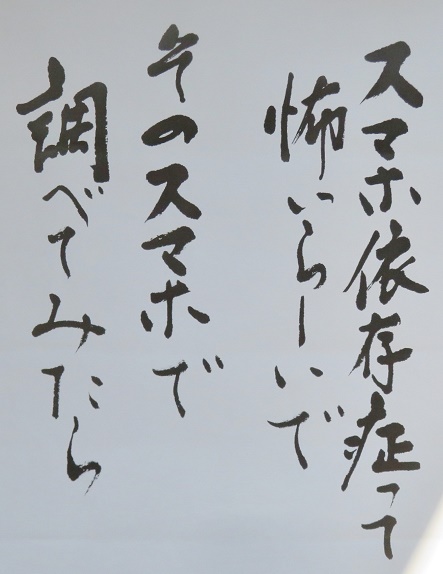 スマホ依存症って
怖いらしいで
そのスマホで
調べてみたら